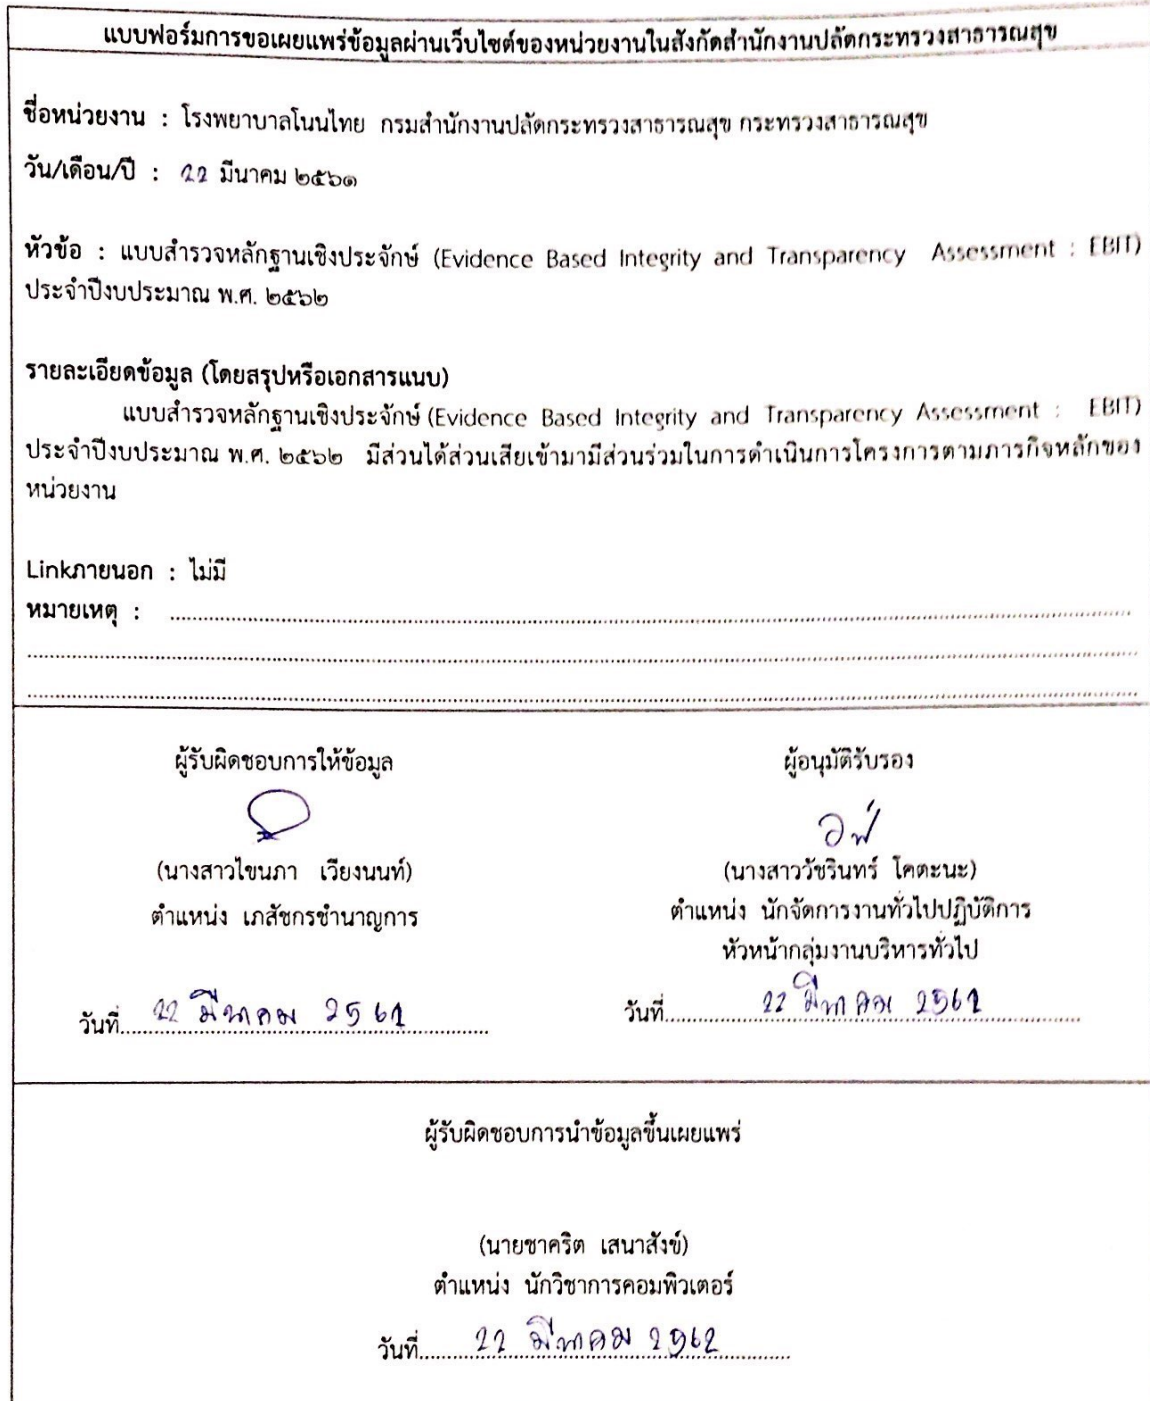 แบบฟอร์มการขอเผยแพร่ข้อมูลผ่านเว็บไซต์ของหน่วยงานในสังกัดสำนักงานปลัดกระทรวงสาธารณสุข
ชื่อหน่วยงาน : โรงพยาบาลโนนไทย กรมสำนักงานปลัดกระทรวงสาธารณสุข กระทรวงสาธารณสุข
วัน/เดือน/ปี : 22 มีนาคม ๒๕๖๑
หัวข้อ : แบบสำรวจหลักฐานเชิงประจักษ์ (Evidence Based Integrity and Transparency Assessment : EBIT)
ประจำปีงบประมาณ พ.ศ. ๒๕๖๒
รายละเอียดข้อมูล (โดยสรุปหรือเอกสารแนบ)
แบบสำรวจหลักฐานเชิงประจักษ์ (Evidence Based Integrity and Transparency Assessment : EBIT)
ประจำปีงบประมาณ พ.ศ. ๒๕๖๒ มีส่วนได้ส่วนเสียเข้ามามีส่วนร่วมในการดำเนินการโครงการตามภารกิจหลักของ
หน่วยงาน
Linkภายนอก : ไม่มี
หมายเหตุ :
ผู้รับผิดชอบการให้ข้อมูล
(นางสาวไขนภา เวียงนนท์)
ตำแหน่ง เภสัชกรชำนาญการ
วันที่ 22 มีนาคม 2562
ผู้อนุมัติรับรอง
(นางสาววัชรินทร์ โคตะนะ)
ตำแหน่ง นักจัดการงานทั่วไปปฏิบัติการ
หัวหน้ากลุ่มงานบริหารทั่วไป
วันที่ 22 มีนาคม 2562
ผู้รับผิดชอบการนำข้อมูลขึ้นเผยแพร่
(นายชาคริต เสนาสังข์)
ตำแหน่ง นักวิชาการคอมพิวเตอร์
วันที่ 22 มีนาคม 2562